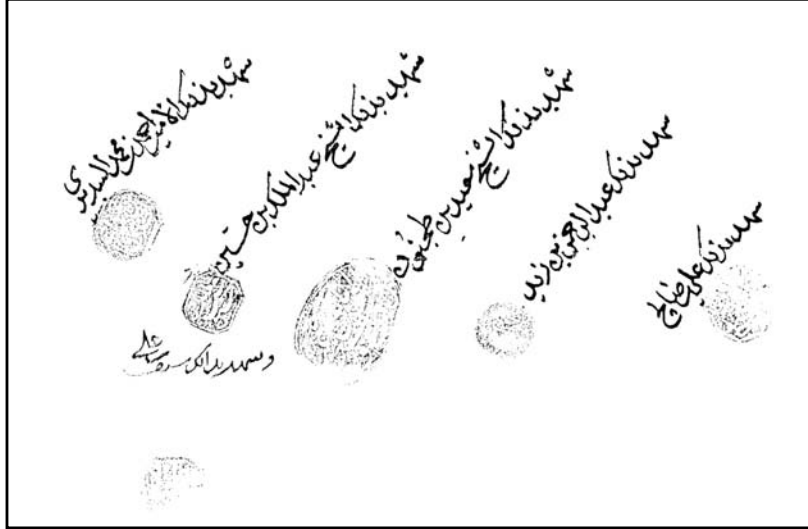 شهد بذلك علي
شهد بذلك عبد الرحمن بن زيد
شهد بذلك الشيخ سعيد بن طحنون
شهد بذلك الشيخ عبد الملك بن حسين
شهد بذلك الامير احمد بن محمد السديري
وشهد بذلك